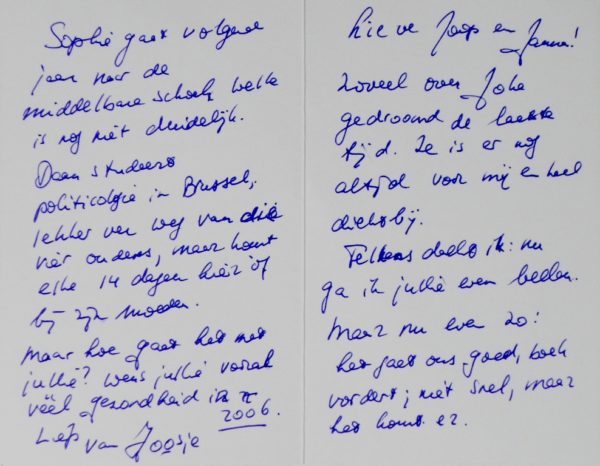 Lieve Jaap en Janna!
Zoveel over Joke
gedroomd de laatste
tijd. Ze is er nog
altijd voor mij en heel
dichtbij.
Telkens dacht ik: nu
ga ik jullie even bellen.
Maar nu even zo:
het gaat ons goed, boek
vordert; niet snel, maar
het komt er.
Sophie gaat volgend
jaar naar de
middelbare school, welke
is nog niet duidelijk.
Daan studeert
politicologie in Brussel,
lekker ver weg van die
vier ouders, maar komt
elke 14 dagen hier of
bij zijn moeder.
Maar hoe gaat het met
jullie? Wens jullie vooral
véél gezondheid in
2006.
Liefs van Joosje